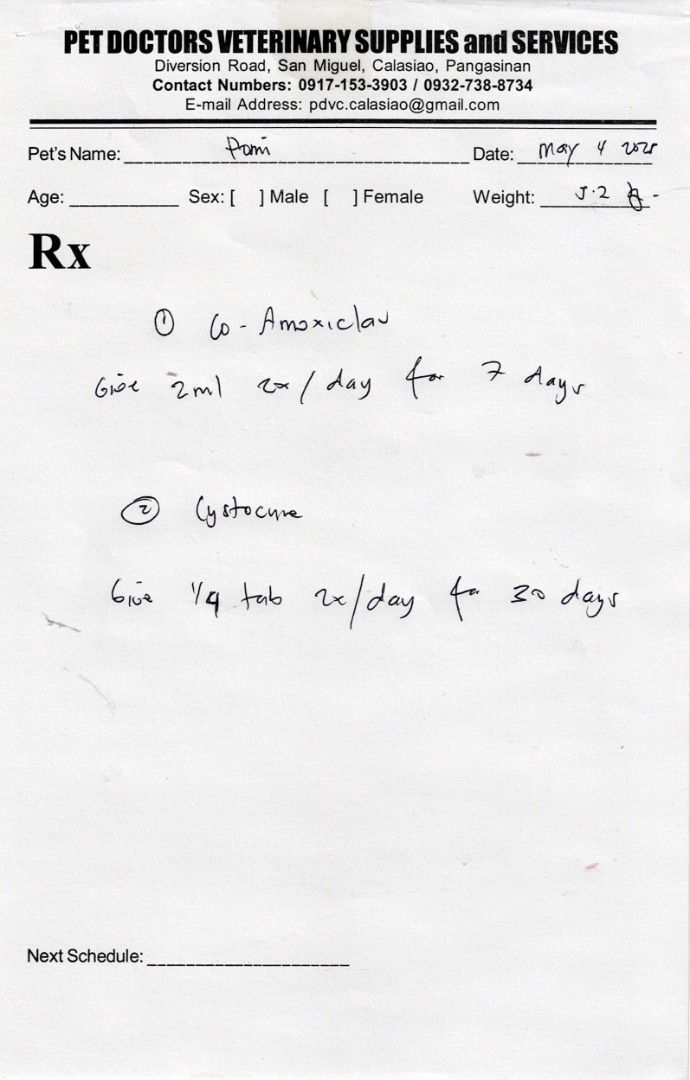 PET DOCTORS VETERINARY SUPPLIES and SERVICES
Diversion Road, San Miguel, Calasiao, Pangasinan
Contact Numbers: 0917-153-3903 / 0932-738-8734
E-mail Address: pdvc.calasiao@gmail.com
Pet's Name: Date: May 4
Age: Sex: [ ] Male [ ] Female Weight: 5.2 kg
Rx
① Co-Amoxiclav
Give 2ml 2x/day for 7 days
② Cystocure
Give 1/4 tab 2x/day for 30 days
Next Schedule: